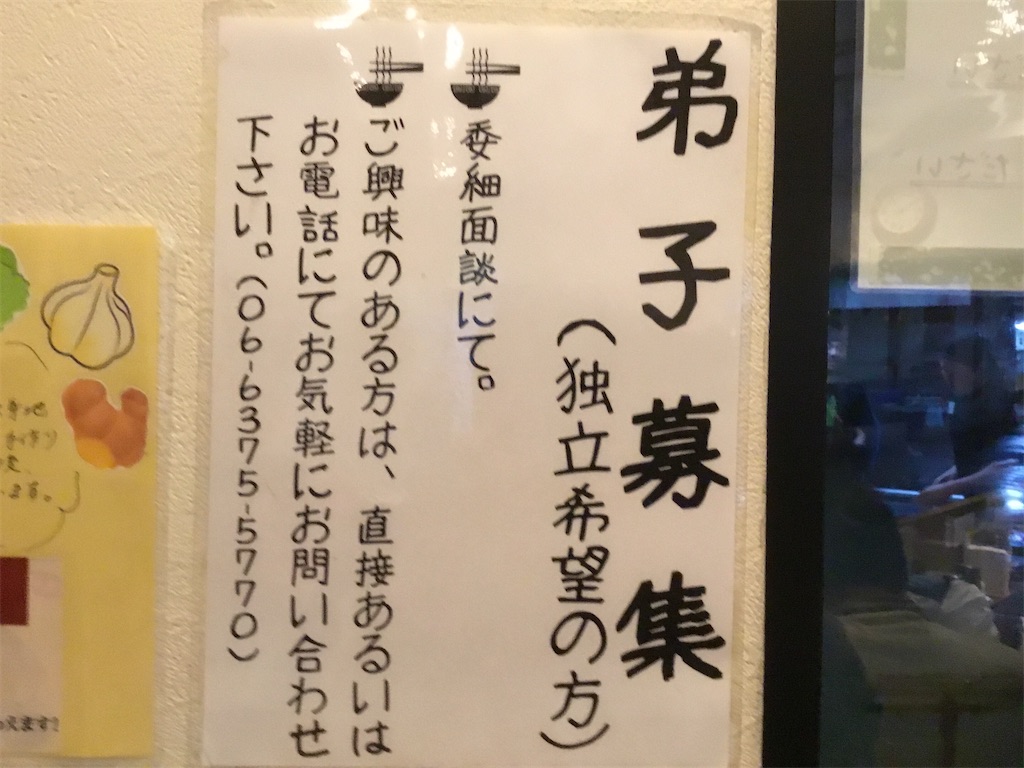 弟子募集
(独立希望の方)
委細面談にて。
ご興味のある方は、直接あるいは
お電話にてお気軽にお問い合わせ
下さい。(06-6375-5770)
ださい
えます?
ます。